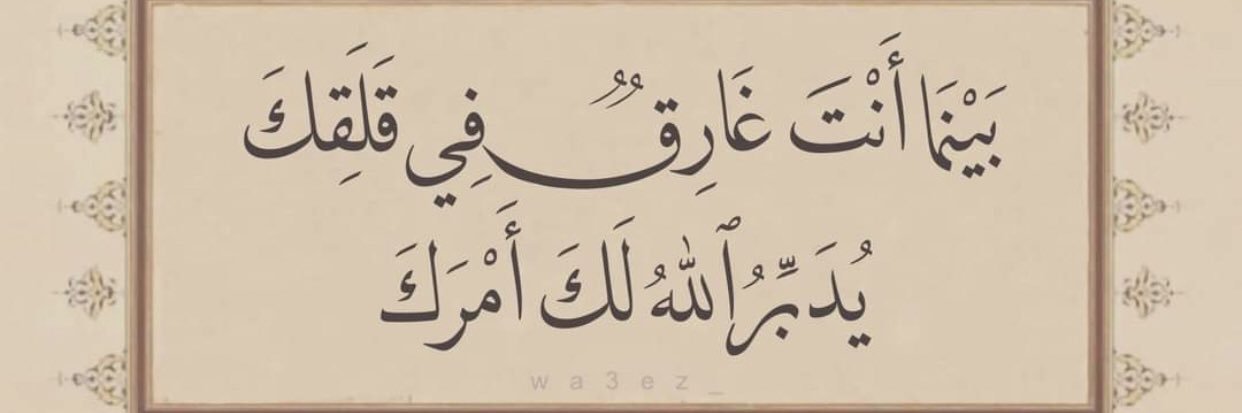 بَيْنَمَا أَنْتَ غَارِقٌ فِي قَلَقِكَ
يُدَبِّرُ ٱللّٰهُ لَكَ أَمْرَكَ
wa3ez_